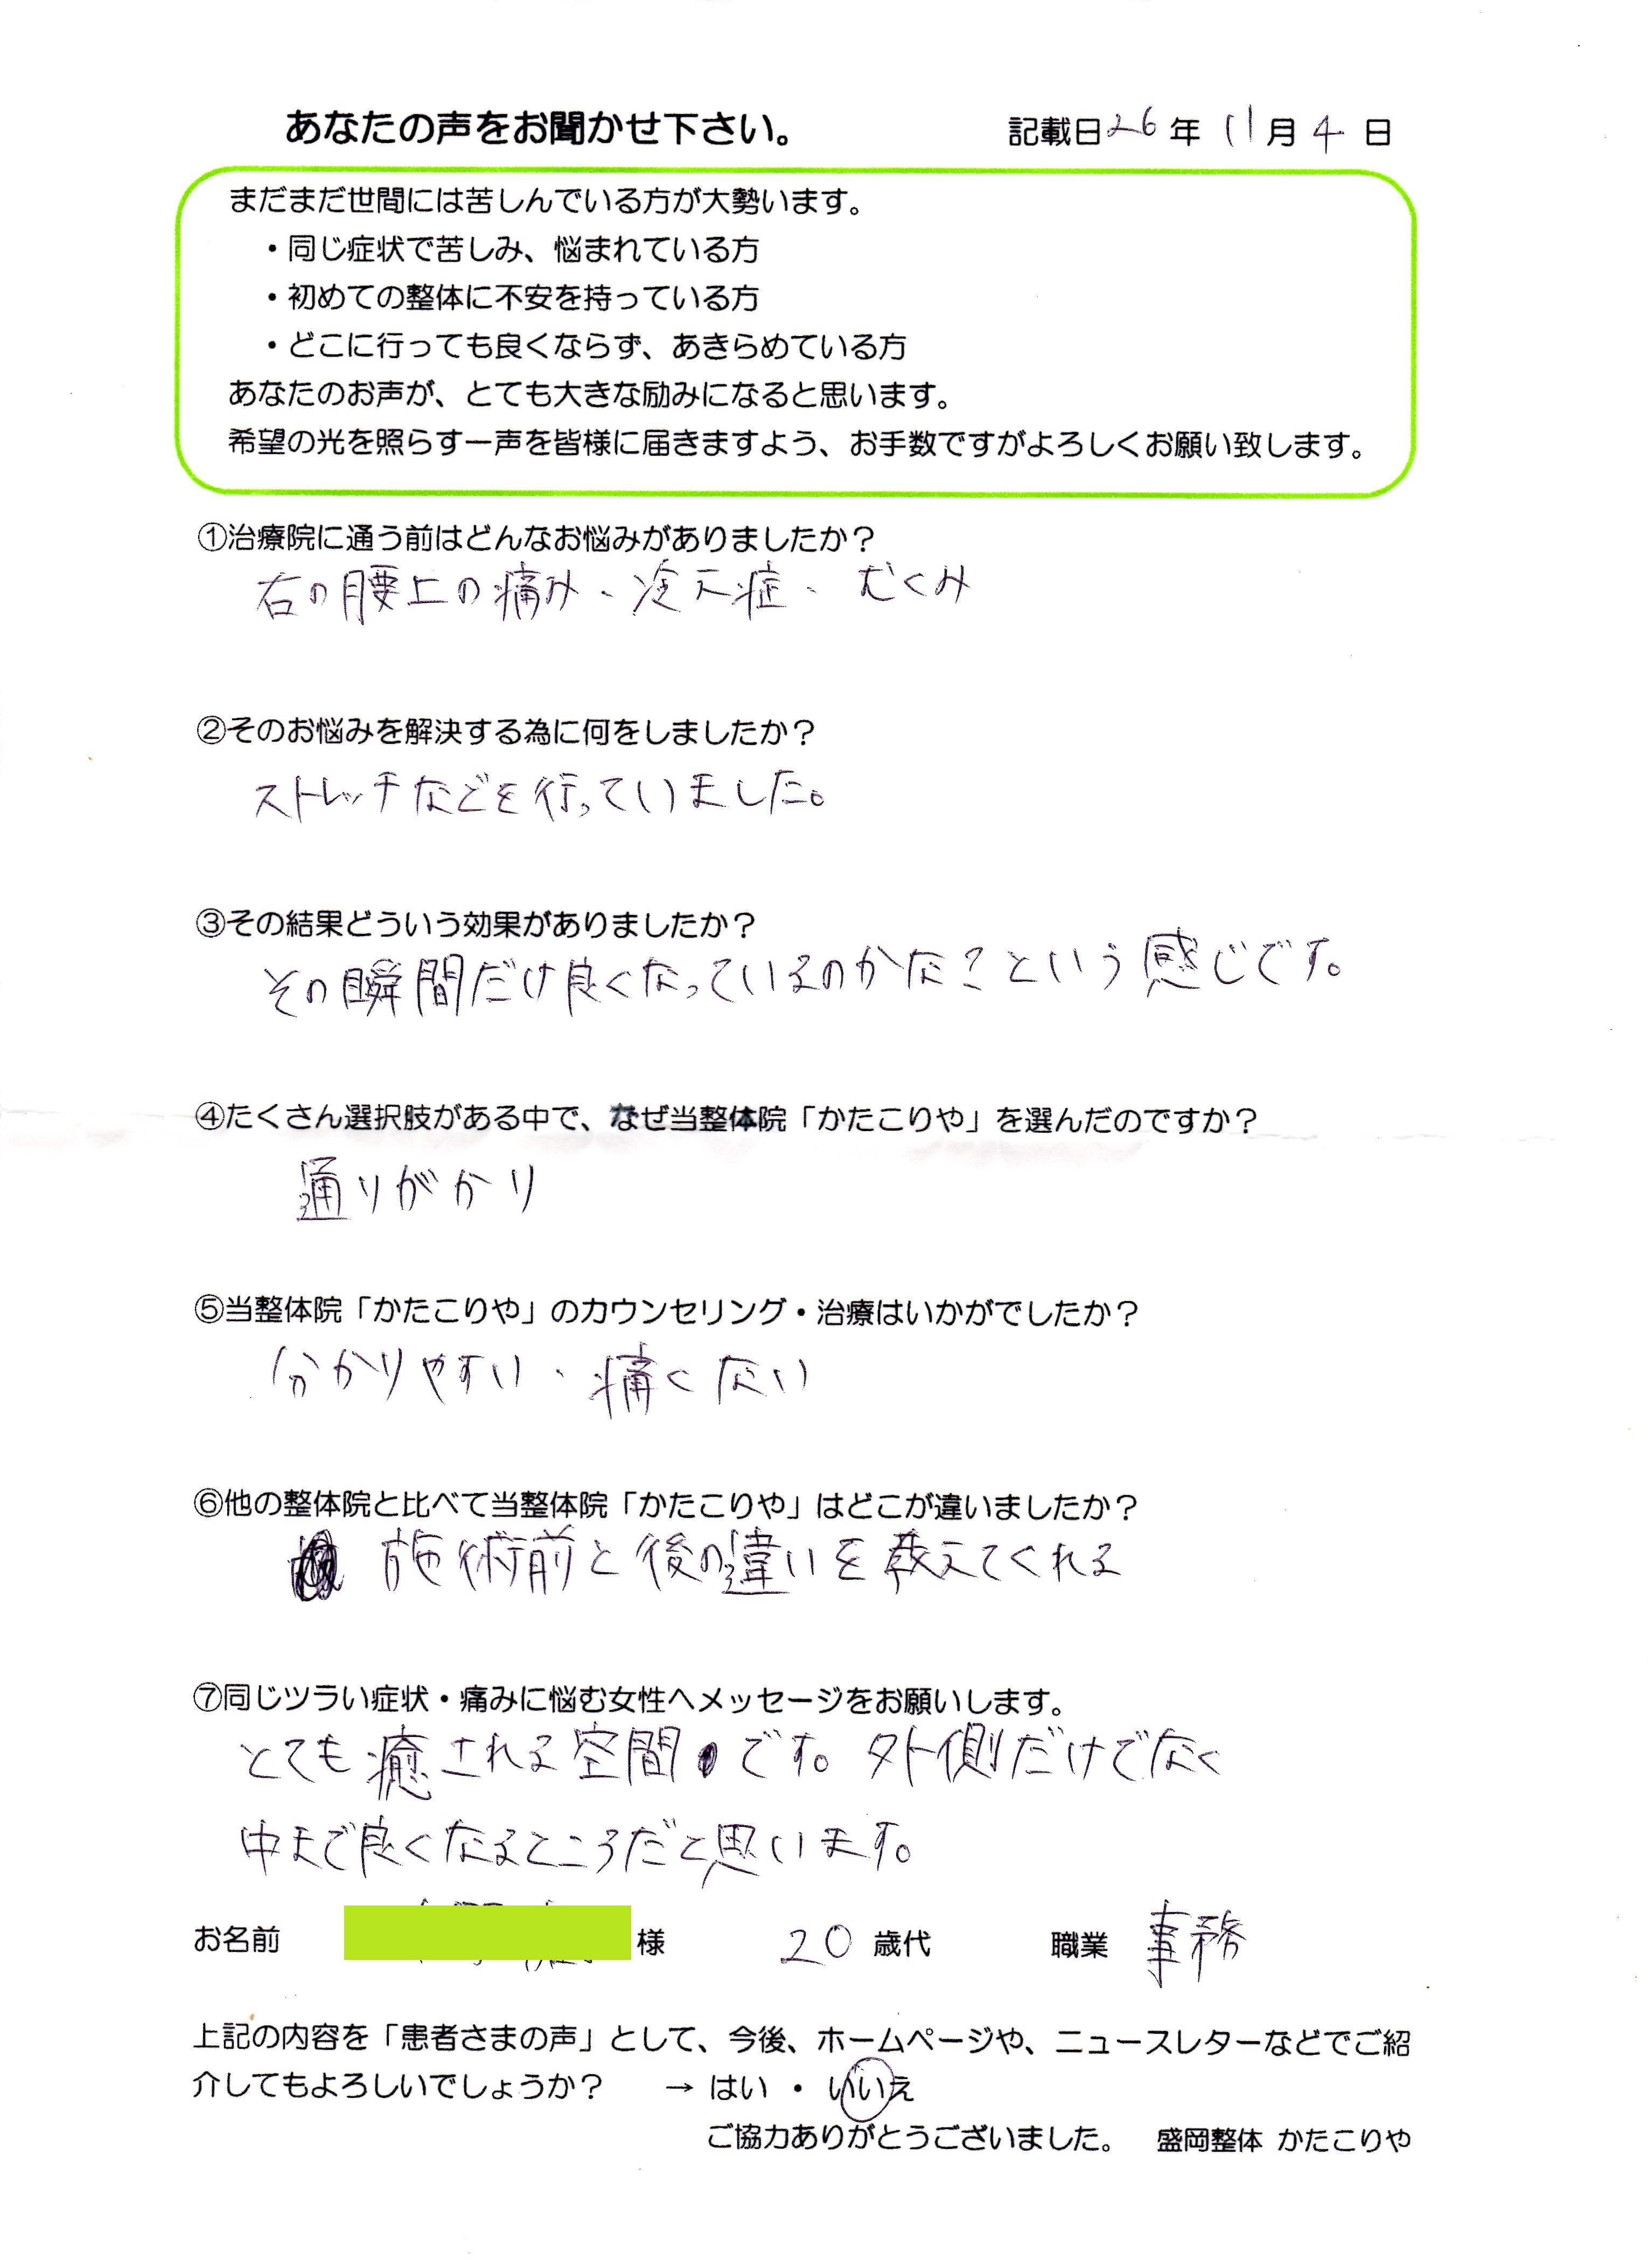 あなたの声をお聞かせ下さい。 記載日26年11月4日
まだまだ世間には苦しんでいる方が大勢います。
・同じ症状で苦しみ、悩まれている方
・初めての整体に不安を持っている方
・どこに行っても良くならず、あきらめている方
あなたのお声が、とても大きな励みになると思います。
希望の光を照らす一声を皆様に届きますよう、お手数ですがよろしくお願い致します。
①治療院に通う前はどんなお悩みがありましたか？
右の腰上の痛み、冷え症、むくみ
②そのお悩みを解決する為に何をしましたか？
ストレッチなどを行っていました。
③その結果どういう効果がありましたか？
その瞬間だけ良くなっているのかな？という感じです。
④たくさん選択肢がある中で、なぜ当整体院「かたこりや」を選んだのですか？
通りがかり
⑤当整体院「かたこりや」のカウンセリング・治療はいかがでしたか？
分かりやすい、痛くない
⑥他の整体院と比べて当整体院「かたこりや」はどこが違いましたか？
施術前と後の違いを教えてくれる
⑦同じツラい症状・痛みに悩む女性へメッセージをお願いします。
とても癒される空間です。外側だけでなく
中まで良くなるところだと思います。
お名前 様 20歳代 職業 事務
上記の内容を「患者さまの声」として、今後、ホームページや、ニュースレターなどでご紹
介してもよろしいでしょうか？ → はい ・ いいえ
ご協力ありがとうございました。 盛岡整体 かたこりや